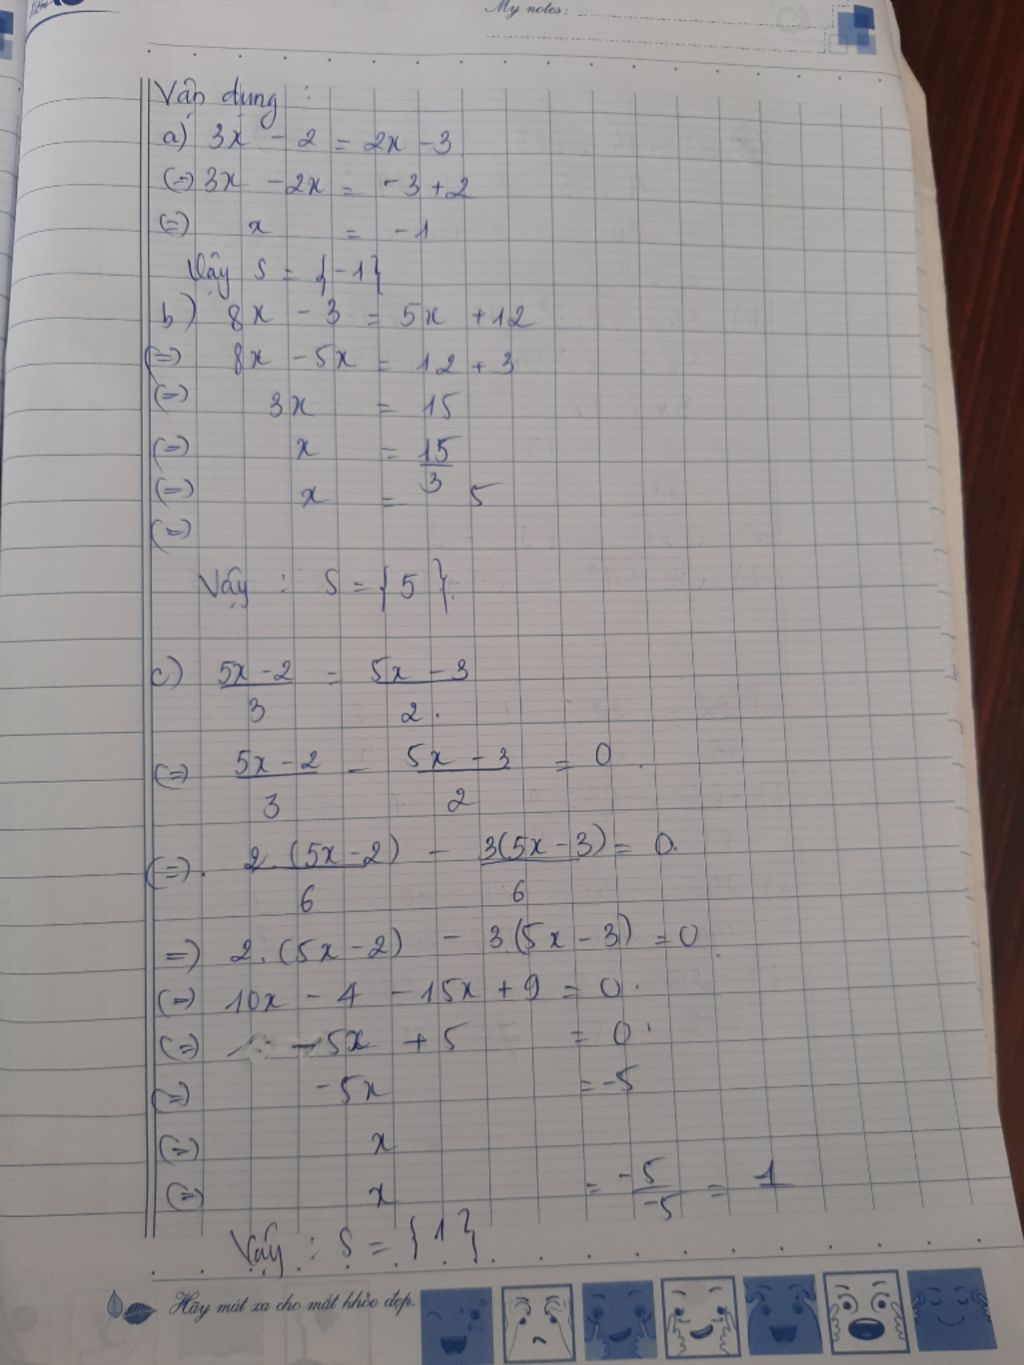 My notes:
Vận dụng :
a) 3x - 2 = 2x - 3
(=) 3x - 2x = -3 + 2
(=) x = -1
Vậy S = {-1}
b) 8x - 3 = 5x + 12
(=) 8x - 5x = 12 + 3
(=) 3x = 15
(=) x = 15/3
(=) x = 5
(=)
Vậy : S = {5}.
c) (5x - 2)/3 = (5x - 3)/2.
(=) (5x - 2)/3 - (5x - 3)/2 = 0.
(=). 2.(5x - 2)/6 - 3(5x - 3)/6 = 0.
=) 2.(5x - 2) - 3(5x - 3) = 0.
(=) 10x - 4 - 15x + 9 = 0.
(=) -5x + 5 = 0.
(=) -5x = -5
(=) x
(=) x = -5/-5 = 1
Vậy : S = {1}
Hãy mát xa cho mắt khỏe đẹp.